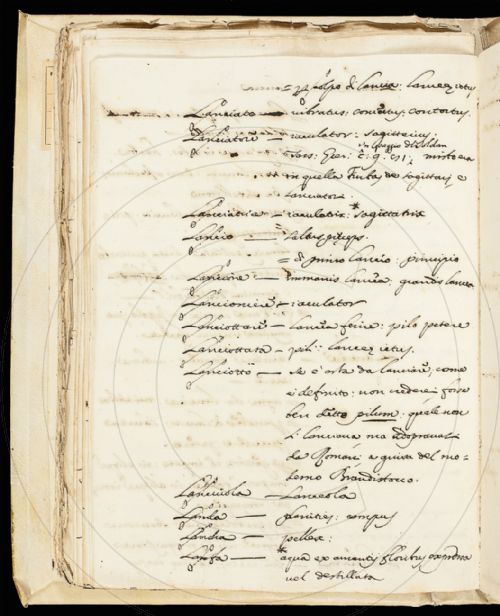 = colpo di lancia: lanceae ictus
Lanciato — vibratus: contortus.
Lanciatore — iaculator: Sagittarius:
in quella de Sagittarii, e
lanciatori:
Lanciatrice — iaculatrix: *Sagittatrix
Lancio — saltus praeceps.
= di primo lancio: principio
Lancione — immanis lancea: grandis lancea
Lancioniere — iaculator
Lanciottare — lancea ferire: pilo petere
Lanciottata — pili: lanceae ictus.
Lanciotto — se è asta da lanciare, come
è definito: non crederei forse
ben detto pilum: quale non
si lanciava ma adopravasi
da Romani a guisa del mo-
derno Brandistocco.
Lanciuola — Lanceola
Landa — planities: campus
Landra — pellex:
Lanfa — *aqua ex floribus expressa
vel destillata